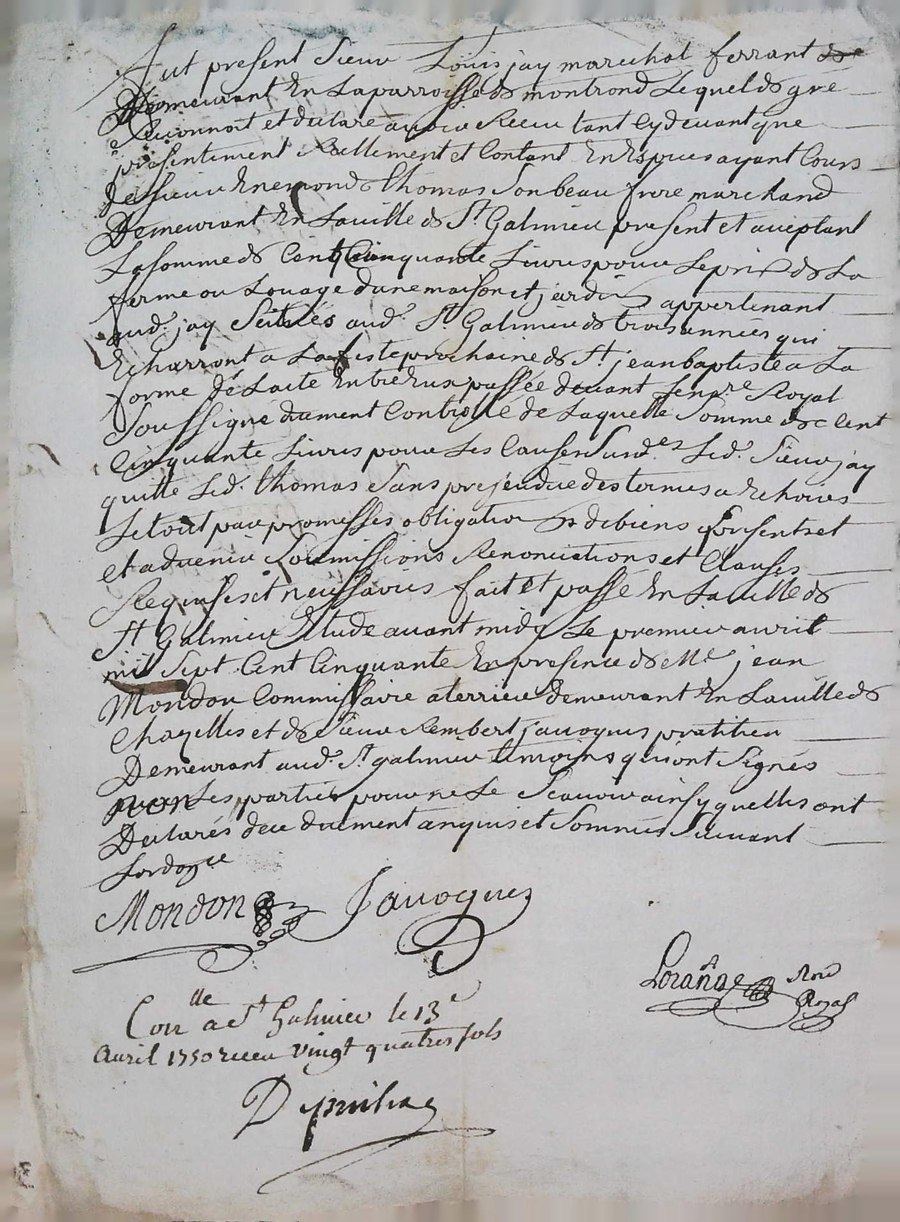 Fut present Sieur Louis jay marechal ferrant
Demeurant En Laparroisse de montrond Lequel de gré
Reconnoit et declare avoir Receu tant Cy devant que
presentement Reellement et Contant En Especes ayant Cours
de sieur Enemond thomas Son beau frere marchand
Demeurant En Laville de St Galmier present et aceptant
La somme de Cent Cinquante Livres pour Le prix de La
ferme ou Louage dune maison et jardin appartenant
aud. jay Scitués aud. St Galmier de trois années qui
Echarront a La feste prochaine de St jean baptiste a La
forme de Lacte Entre Eux passée devant Le nore Royal
Soussigné duement Controllé de Laquelle Somme de Cent
Cinquante Livres pour Les Causes Susd.es Led. Sieur jay
quitte Led. thomas Sans prejeudice des termes a Echoirs
Le tout par promesses obligation de biens presents et
et advenir Soumissions Renonciations et Clauses
Requises et necessaires fait et passé En Laville de
St Galmier Etude avant midy Le premier avril
mil Sept Cent Cinquante En presence de Me jean
Mondon Commissaire a terrier demeurant En Laville de
Chazelles et de Sieur Rembert javogues pratitien
Demeurant aud. St galmier temoins qui ont Signés
non Les parties pour ne Le Scavoir ainsy quelles ont
Declarés de ce duement anquis et Sommés Suivant
Lordonce
Mondon Javogues
Lorange Nore
Royal
Conlle a St Galmier le 13e
Avril 1750 receu vingt quatres sols